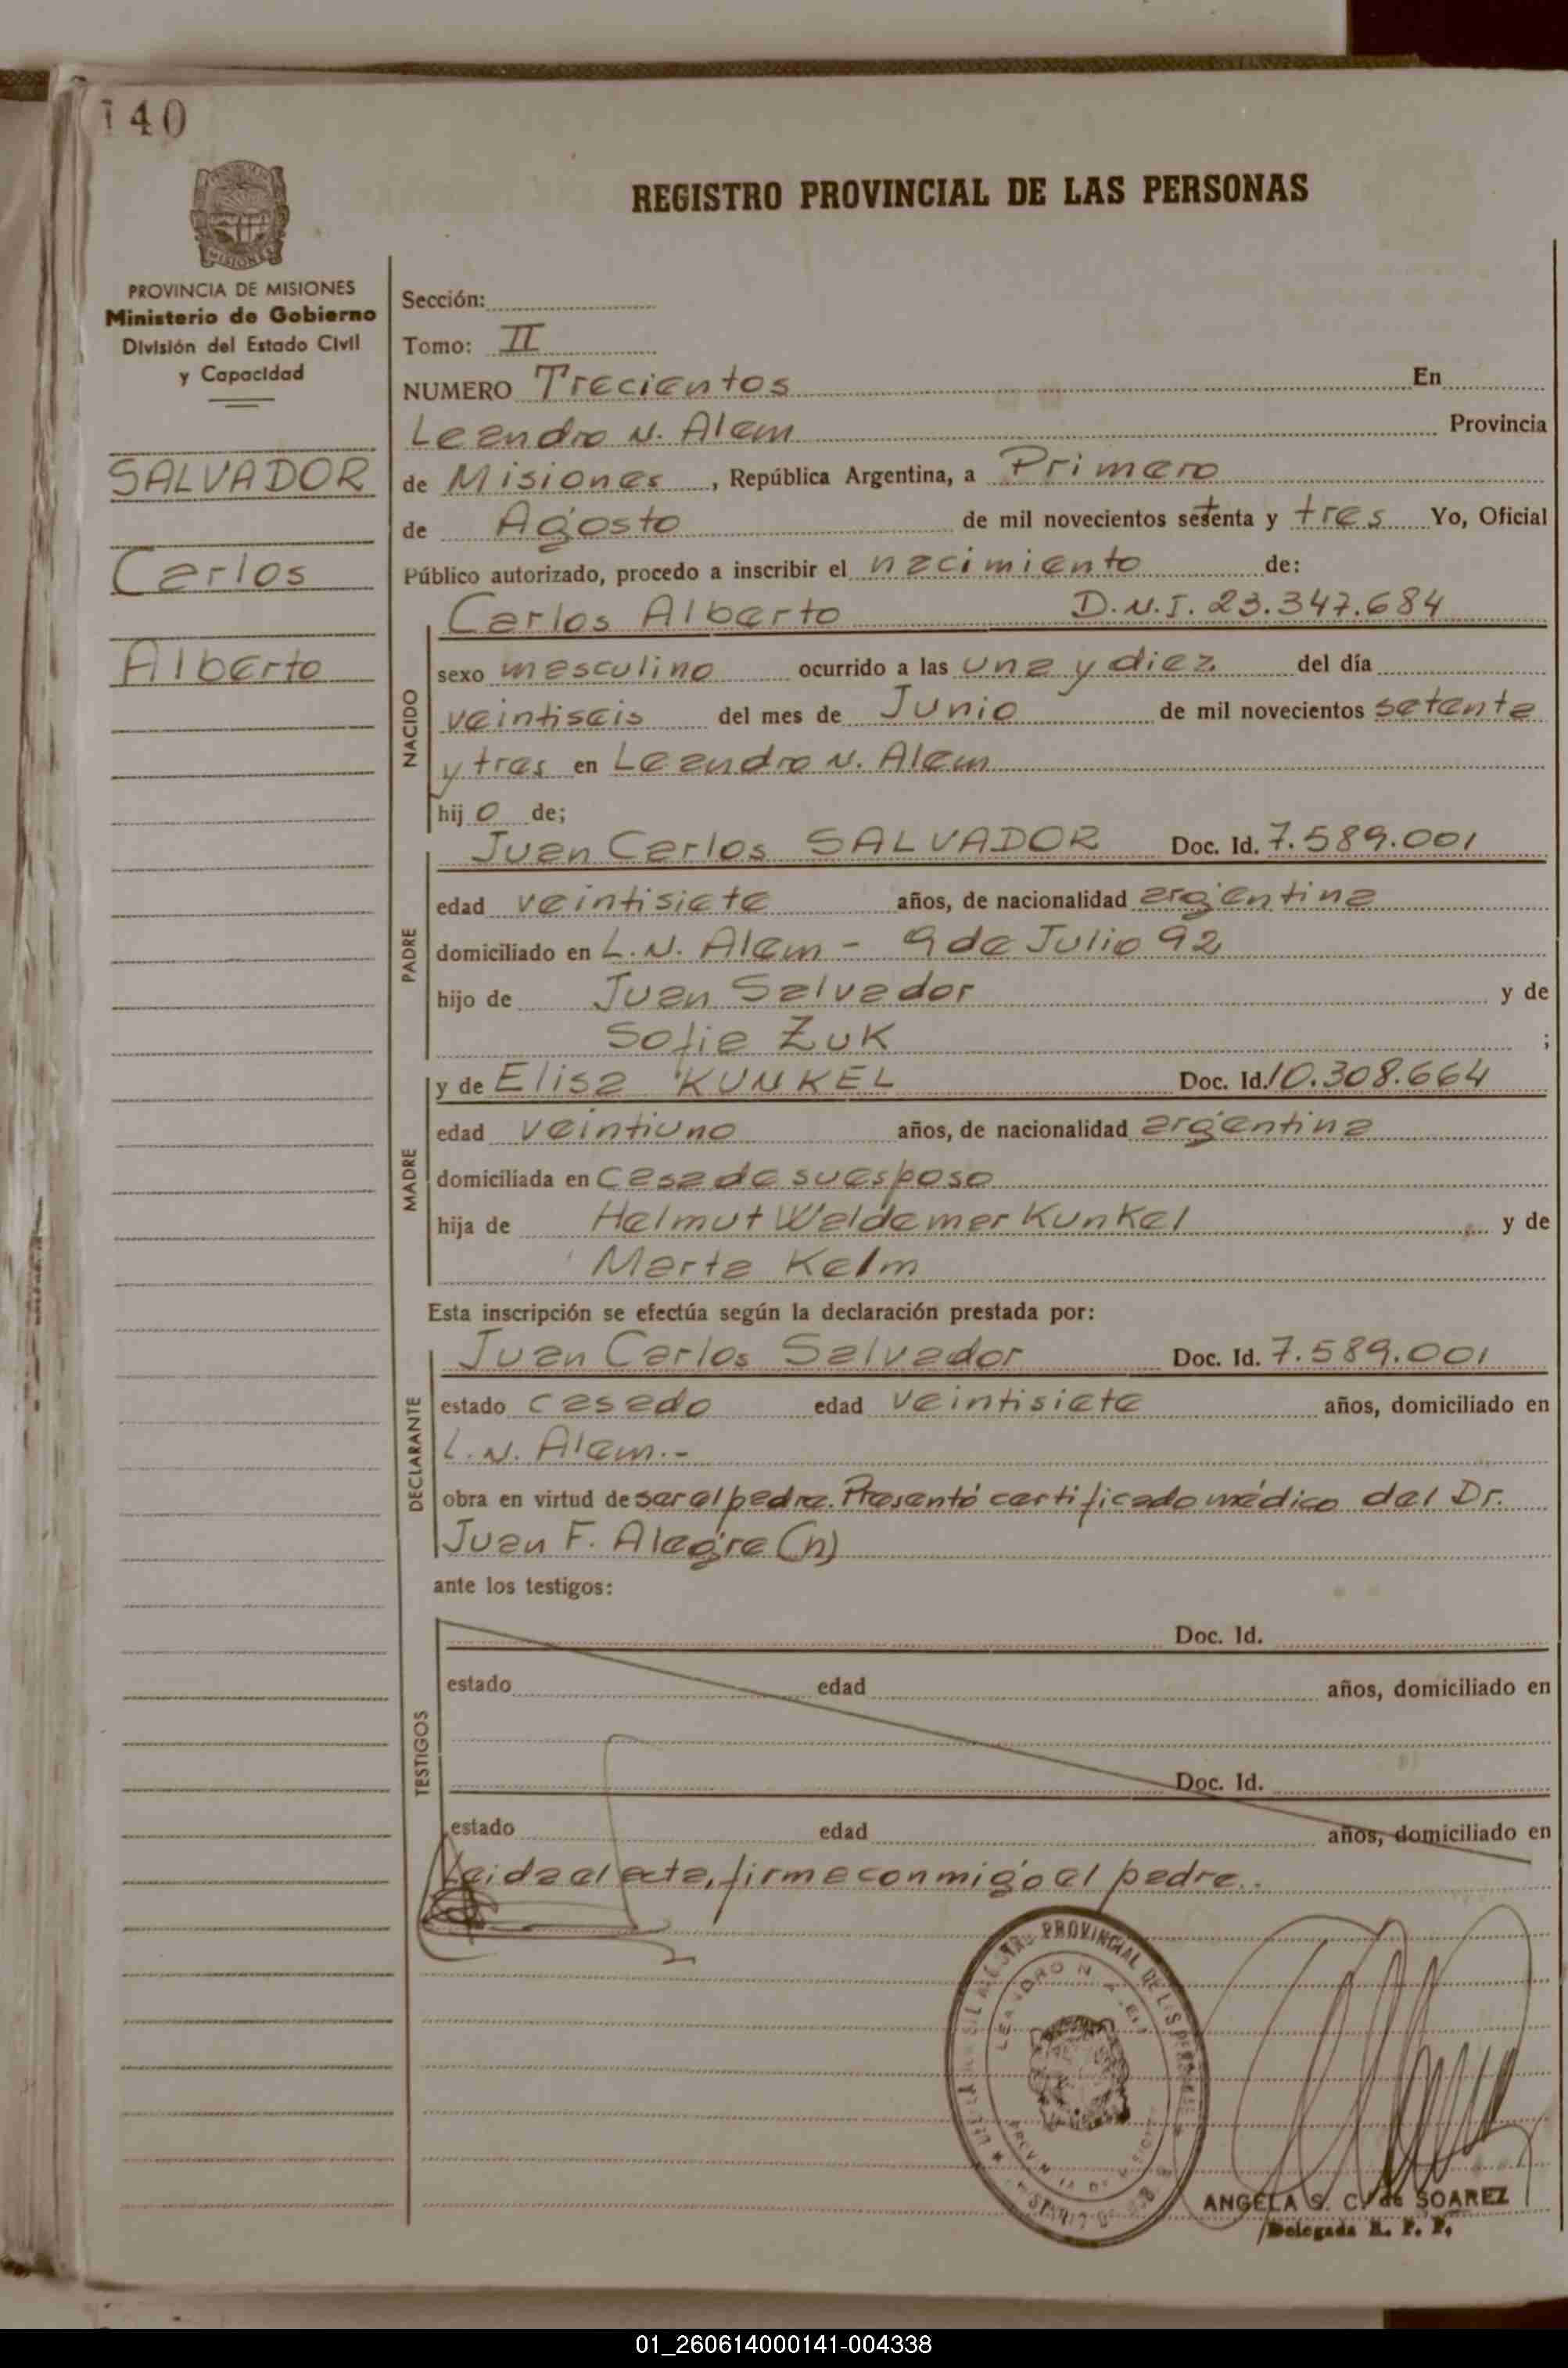 140
REGISTRO PROVINCIAL DE LAS PERSONAS
MISIONES
PROVINCIA DE MISIONES
Ministerio de Gobierno
División del Estado Civil
y Capacidad
SALVADOR
Carlos
Alberto
Sección:
Tomo: II
NUMERO Trecientos En
Leandro N. Alem Provincia
de Misiones, República Argentina, a Primero
de Agosto de mil novecientos setenta y tres Yo, Oficial
Público autorizado, procedo a inscribir el nacimiento de:
Carlos Alberto D.N.I. 23.347.684
NACIDO
sexo masculino ocurrido a las una y diez del día
veintiseis del mes de Junio de mil novecientos setenta
y tres en Leandro N. Alem
hijo de;
PADRE
Juan Carlos SALVADOR Doc. Id. 7.589.001
edad veintisiete años, de nacionalidad argentina
domiciliado en L.N. Alem - 9 de Julio 92
hijo de Juan Salvador y de
Sofia Zuk ;
MADRE
y de Elisa KUNKEL Doc. Id. 10.308.664
edad veintiuno años, de nacionalidad argentina
domiciliada en casa de su esposo
hija de Helmut Waldemar Kunkel y de
Marta Kelm
Esta inscripción se efectúa según la declaración prestada por:
DECLARANTE
Juan Carlos Salvador Doc. Id. 7.589.001
estado casado edad veintisiete años, domiciliado en
L.N. Alem.-
obra en virtud de ser el padre. Presentó certificado médico del Dr.
Juan F. Alegre (h)
ante los testigos:
TESTIGOS
Doc. Id.
estado edad años, domiciliado en
Doc. Id.
estado edad años, domiciliado en
Leida el acta, firma conmigo el padre.
PROVINCIAL DE LAS PERSONAS
LEANDRO N. ALEM
ANGELA S. C. de SOAREZ
Delegada R. P. P.
01_260614000141-004338